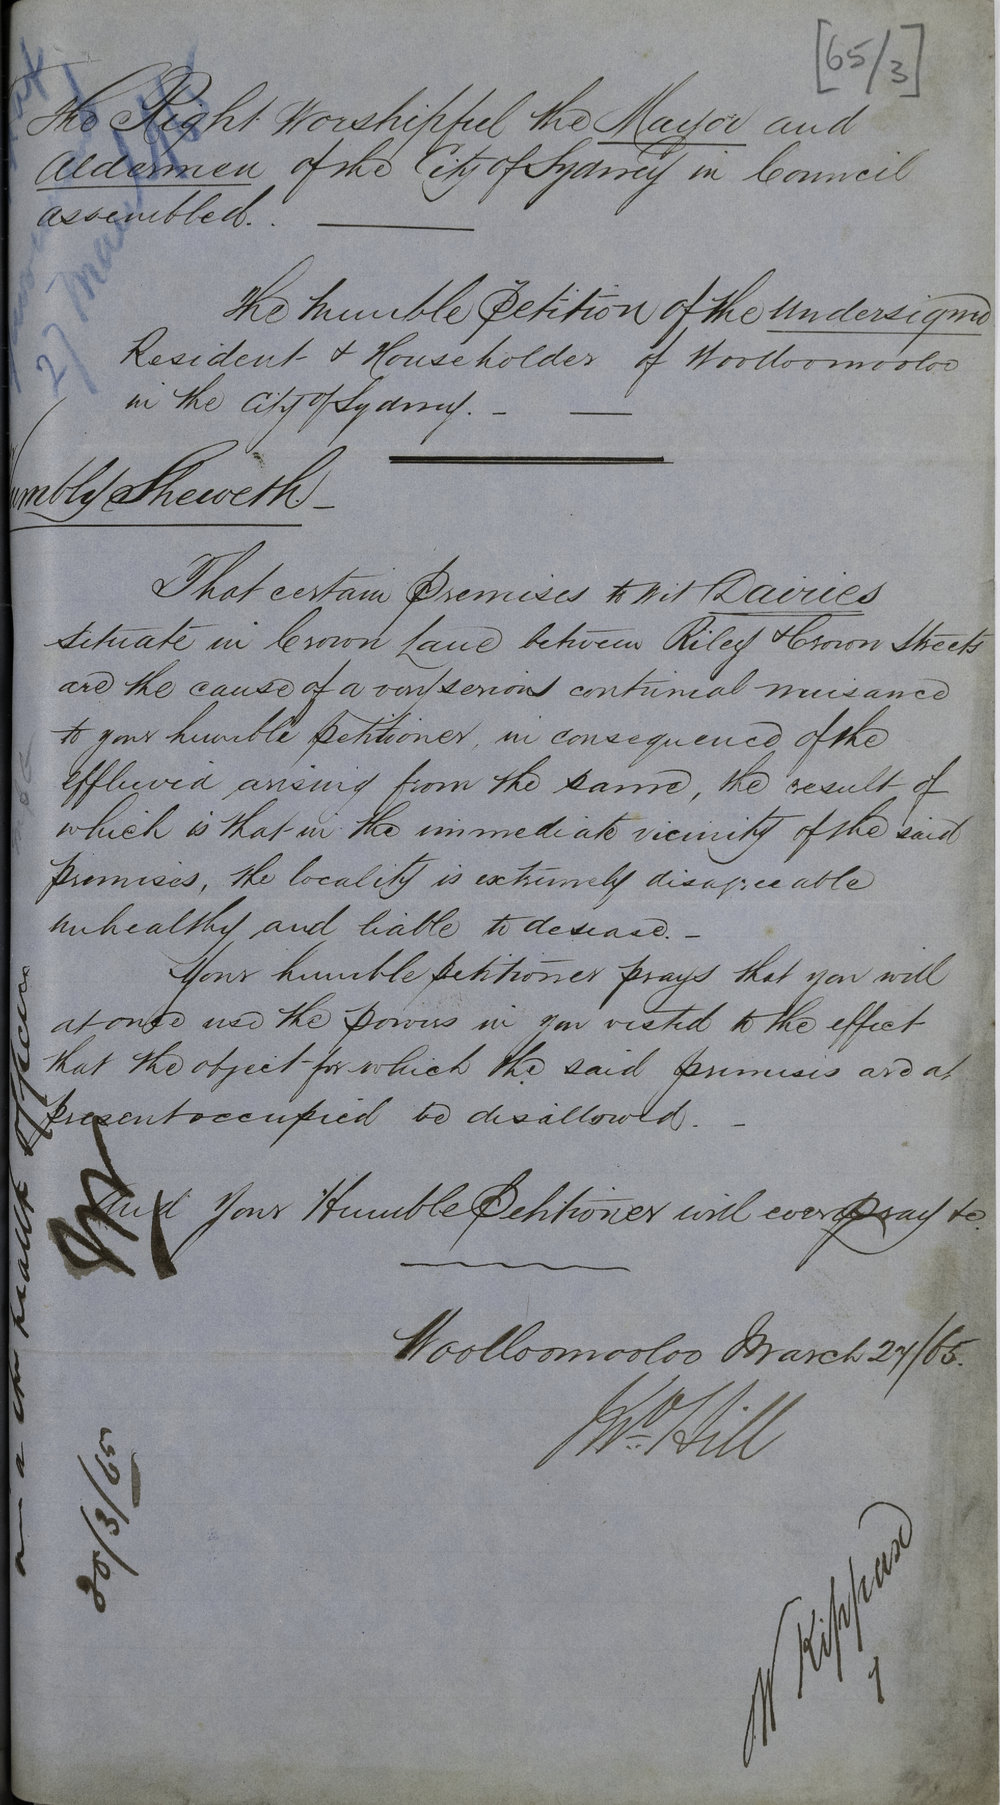 [65/3]
The Right Worshipful the Mayor and
Aldermen of the City of Sydney in Council
assembled.
The humble Petition of the Undersigned
Resident & Householder of Woolloomooloo
in the City of Sydney.
umbly Sheweth
That certain Premises to wit Dairies
situate in Crown Lane between Riley & Crown Streets
are the cause of a very serious continual nuisance
to your humble petitioner, in consequence of the
effluvia arising from the same, the result of
which is that in the immediate vicinity of the said
premises, the locality is extremely disagreeable
unhealthy and liable to desease.
Your humble petitioner prays that you will
at once use the powers in you vested to the effect
that the object for which the said premises are at
present occupied be disallowed.
And Your Humble Petitioner will ever pray &c.
Woolloomooloo March 27/65.
Jno Hill
W Kippax
health Officer
30/3/65
27 March